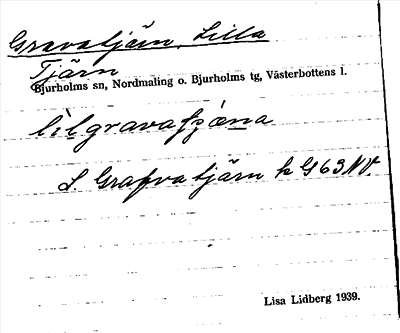 Gravatjärn, Lilla
Tjärn
Bjurholms sn, Nordmaling o. Bjurholms tg, Västerbottens l.
L. Grafvatjärn k G63NV.
Lisa Lidberg 1939.